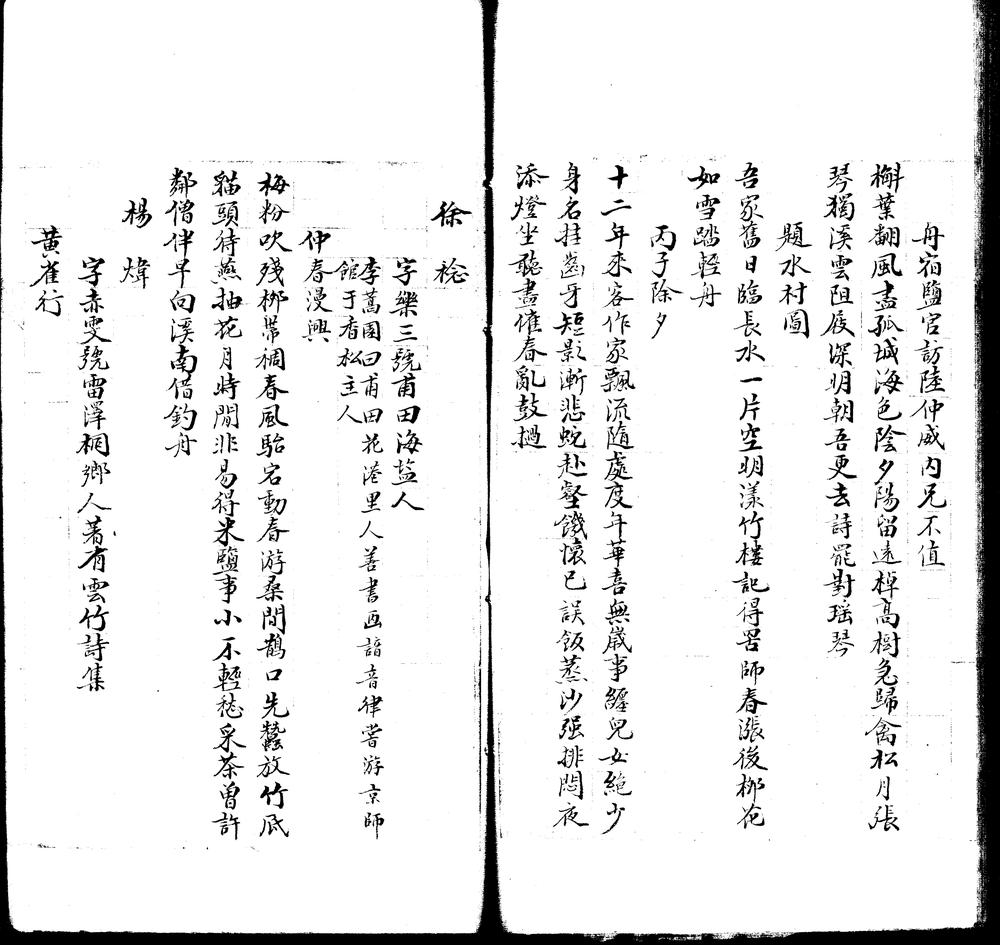 舟宿鹽官訪陸仲威内兄不值
槲葉翻風盡孤城海色陰夕陽留遠棹高樹急歸禽松月張
琴獨溪雲阻屐深明朝吾更去詩罷對瑶琴
題水村圖
吾家舊日臨長水一片空明漾竹樓記得罟師春漲後栁花
如雪踏輕舟
丙子除夕
十二年來客作家飄流隨處度年華喜無歲事纏兒女絶少
身名挂齒牙短影漸悲蛇赴壑饑懷已誤飯蒸沙强排悶夜
添燈坐聽盡催春亂鼓撾
徐稔
字樂三號甫田海盐人
李蒿園曰甫田花港里人善書画諳音律嘗游京師
館于香松主人
仲春漫興
梅粉吹殘栁帶稠春風駘宕動春游桑間鵲口先蠶放竹底
貓頭待燕抽花月時閒非易得米鹽事小不輕愁采茶曾許
鄰僧伴早向溪南借釣舟
楊煒
字赤雯號雷澤桐鄉人著有雲竹詩集
黄雀行